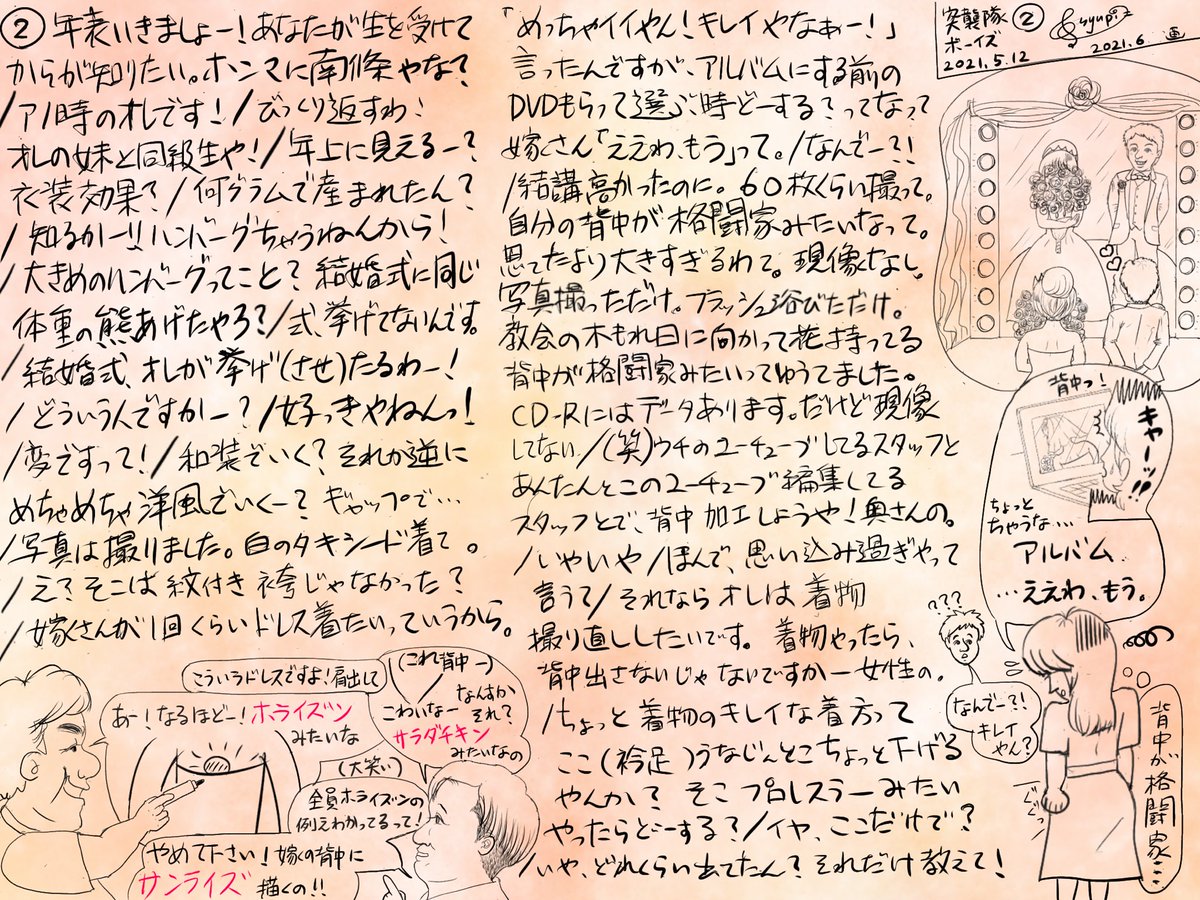 ② 年表いきましょー！あなたが生を受けて
からが知りたい。ホンマに南條やな？
/アノ時のオレです！/びっくり返すわ！
オレの妹と同級生や！/年上に見えるー？
衣装効果？/何グラムで産まれたん？
/知るかーい!ハンバーグちゃうねんから！
/大きめのハンバーグってこと？結婚式に同じ
体重の熊あげたやろ？/式、挙げてないんです。
/結婚式、オレが挙げ(させ)たるわー！
/どういう人ですかー？/好っきゃねんっ！
/変ですって！/和装でいく？それか逆に
めちゃめちゃ洋風でいくー？ギャップで…
/写真は撮りました。白のタキシード着て。
/え？そこは紋付き袴じゃなかった？
/嫁さんが1回くらいドレス着たいっていうから。
こういうドレスですよ！肩出して
あー！なるほどー！ホライズン
みたいな
(これ背中ー)
こわいなー
なんすか
それ？
サラダチキン
みたいなの
(大笑い)
全員ホライズンの
例えわかってるって！
やめて下さい！嫁の背中に
サンライズ 描くの!!
「めっちゃイイやん！キレイやなぁー！」
言ったんですが、アルバムにする前の
DVDもらって選ぶ時どーする？ってなって
嫁さん「ええわ、もう」って。/なんでー？！
/結講高かったのに。60枚くらい撮って。
自分の背中が格闘家みたいなって。
思てたより大きすぎるわて。現像なし。
写真撮っただけ。フラッシュ浴びただけ。
教会の木もれ日に向かって花持ってる
背中が格闘家みたいってゆうてました。
CD-Rにはデータあります。だけど現像
してない/(笑)ウチのユーチューブしてるスタッフと
あんたんとこのユーチューブ編集してる
スタッフとで、背中加工しようや！奥さんの。
/いやいや/ほんで、思い込み過ぎやって
言うて/それならオレは着物
撮り直ししたいです。着物やったら、
背中出さないじゃないですかー女性の。
/ちょっと着物のキレイな着方って
ここ(衿足)うなじんとこちょっと下げる
やんか？そこプロレスラーみたい
やったらどーする？/イヤ、ここだけで？
/いや、どれくらい出てたん？それだけ教えて！
突襲隊②
ボーイズ
2021.5.12
ryupiz
2021.6 画
背中っ！
キャーッ!!
ちょっと
ちゃうな…
アルバム
…ええわ、もう。
???
なんでー？！
キレイ
やん？
背中が格闘家…